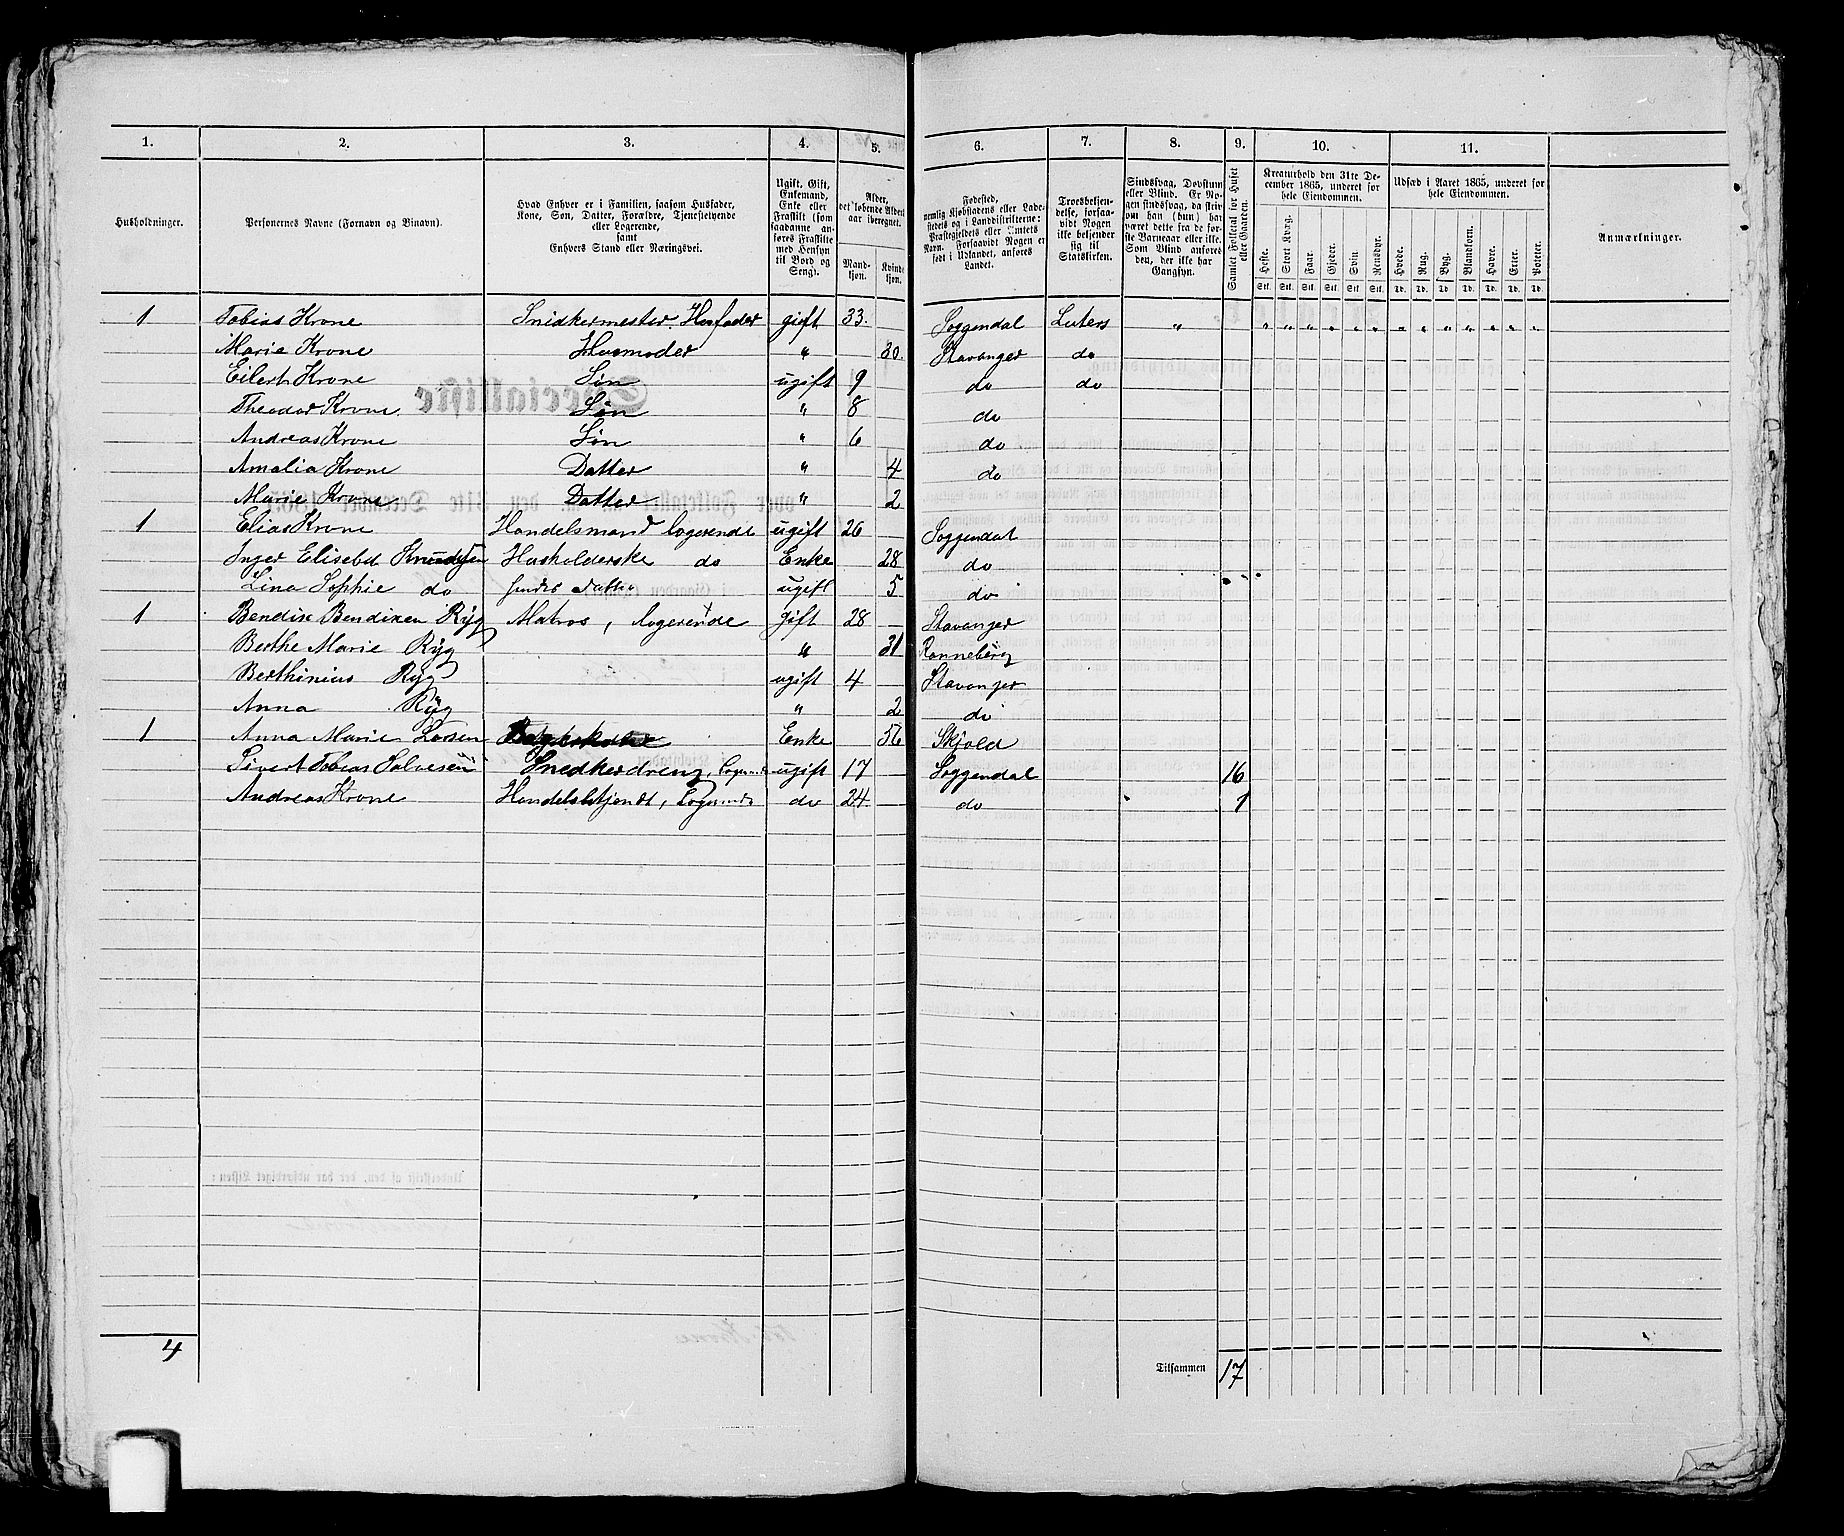 1. 2. 3. 4. 5. 6. 7. 8. 9. 10. 11.
Husholdninger.
Personernes Navne (Fornavn og Binavn).
Hvad Enhver er i Familien, saasom Husfader, Kone, Søn, Datter, Forældre, Tjenestetyende eller Logerende, samt Enhvers Stand eller Næringsvei.
Ugift, Gift, Enkemand, Enke eller Fraskilt (som saadanne anføres Fraskilte med Hensyn til Bord og Seng).
Alder, det løbende Aldersaar iberegnet.
Mandkjøn. Kvindekjøn.
Fødested, nemlig Kjøbstadens eller Ladestedets og i Landdistrikterne: Præstegjeldets eller Amtets Navn. Forsaavidt Nogen er født i Udlandet, anføres Landet.
Troesbekjendelse, forsaavidt Nogen ikke bekjender sig til Statskirken.
Sindssvag, Døvstum eller Blind. Er Nogen sindssvag, da skrives om han (hun) har været dette fra de første Barneaar eller ikke. Som Blind anføres den, der ikke har Gangsyn.
Samlet Folketal for Huset eller Gaarden.
Kreaturhold den 31te December 1865, underet for hele Eiendommen.
Heste. Stort Kvæg. Faar. Gjeder. Svin. Rensdyr.
Stk. Stk. Stk. Stk. Stk. Stk.
Udsæd i Aaret 1865, underet for hele Eiendommen.
Hvede. Rug. Byg. Blandkorn. Havre. Erter. Poteter.
Td. Td. Td. Td. Td. Td. Td.
Anmærkninger.
1 Tobias Krone Snidkermester, Husfader gift 33. Soggendal Luters " " " " " " " " " " " " " "
Marie Krone Husmoder " 30. Stavanger do
Eilert Krone Søn ugift 9 do do
Theodor Krone Søn " 8 do
Andreas Krone Søn " 6 do
Amalia Krone Datter " 4 do
Marie Krone Datter " 2
1 Elias Krone Handelsmand logerende ugift 26 Soggendal
Inger Elisebet Knudsen Husholderske do Enke 28 do
Lina Sophie do hendes Datter ugift 5 do
1 Bendix Bendixen Ryg Matros, logerende gift 28 Stavanger
Berthe Marie Ryg " 31 Ranneberg
Berthinius Ryg ugift 4 Stavanger
Anna Ryg " 2 do
1 Anna Marie Larsen Enke 56 Skjold
Sivert Tobias Salvesen Snedkerdreng, Logerende ugift 17 Soggendal 16
Andreas Krone Handelsbetjendt, Logerende do 24 do 1
4 Tilsammen 17